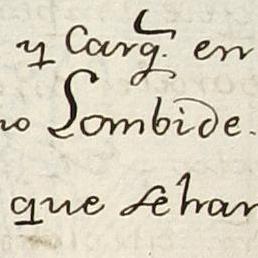 y Carg. en
no Lombide.
que se han